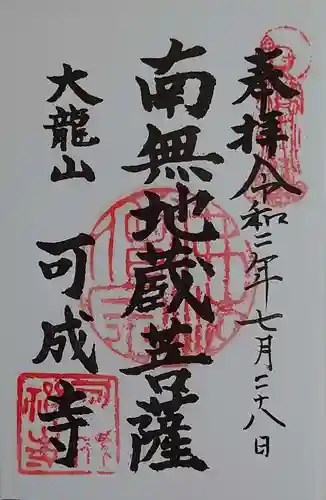 奉拝令和二年七月二十八日
南無地蔵菩薩
大龍山
可成寺